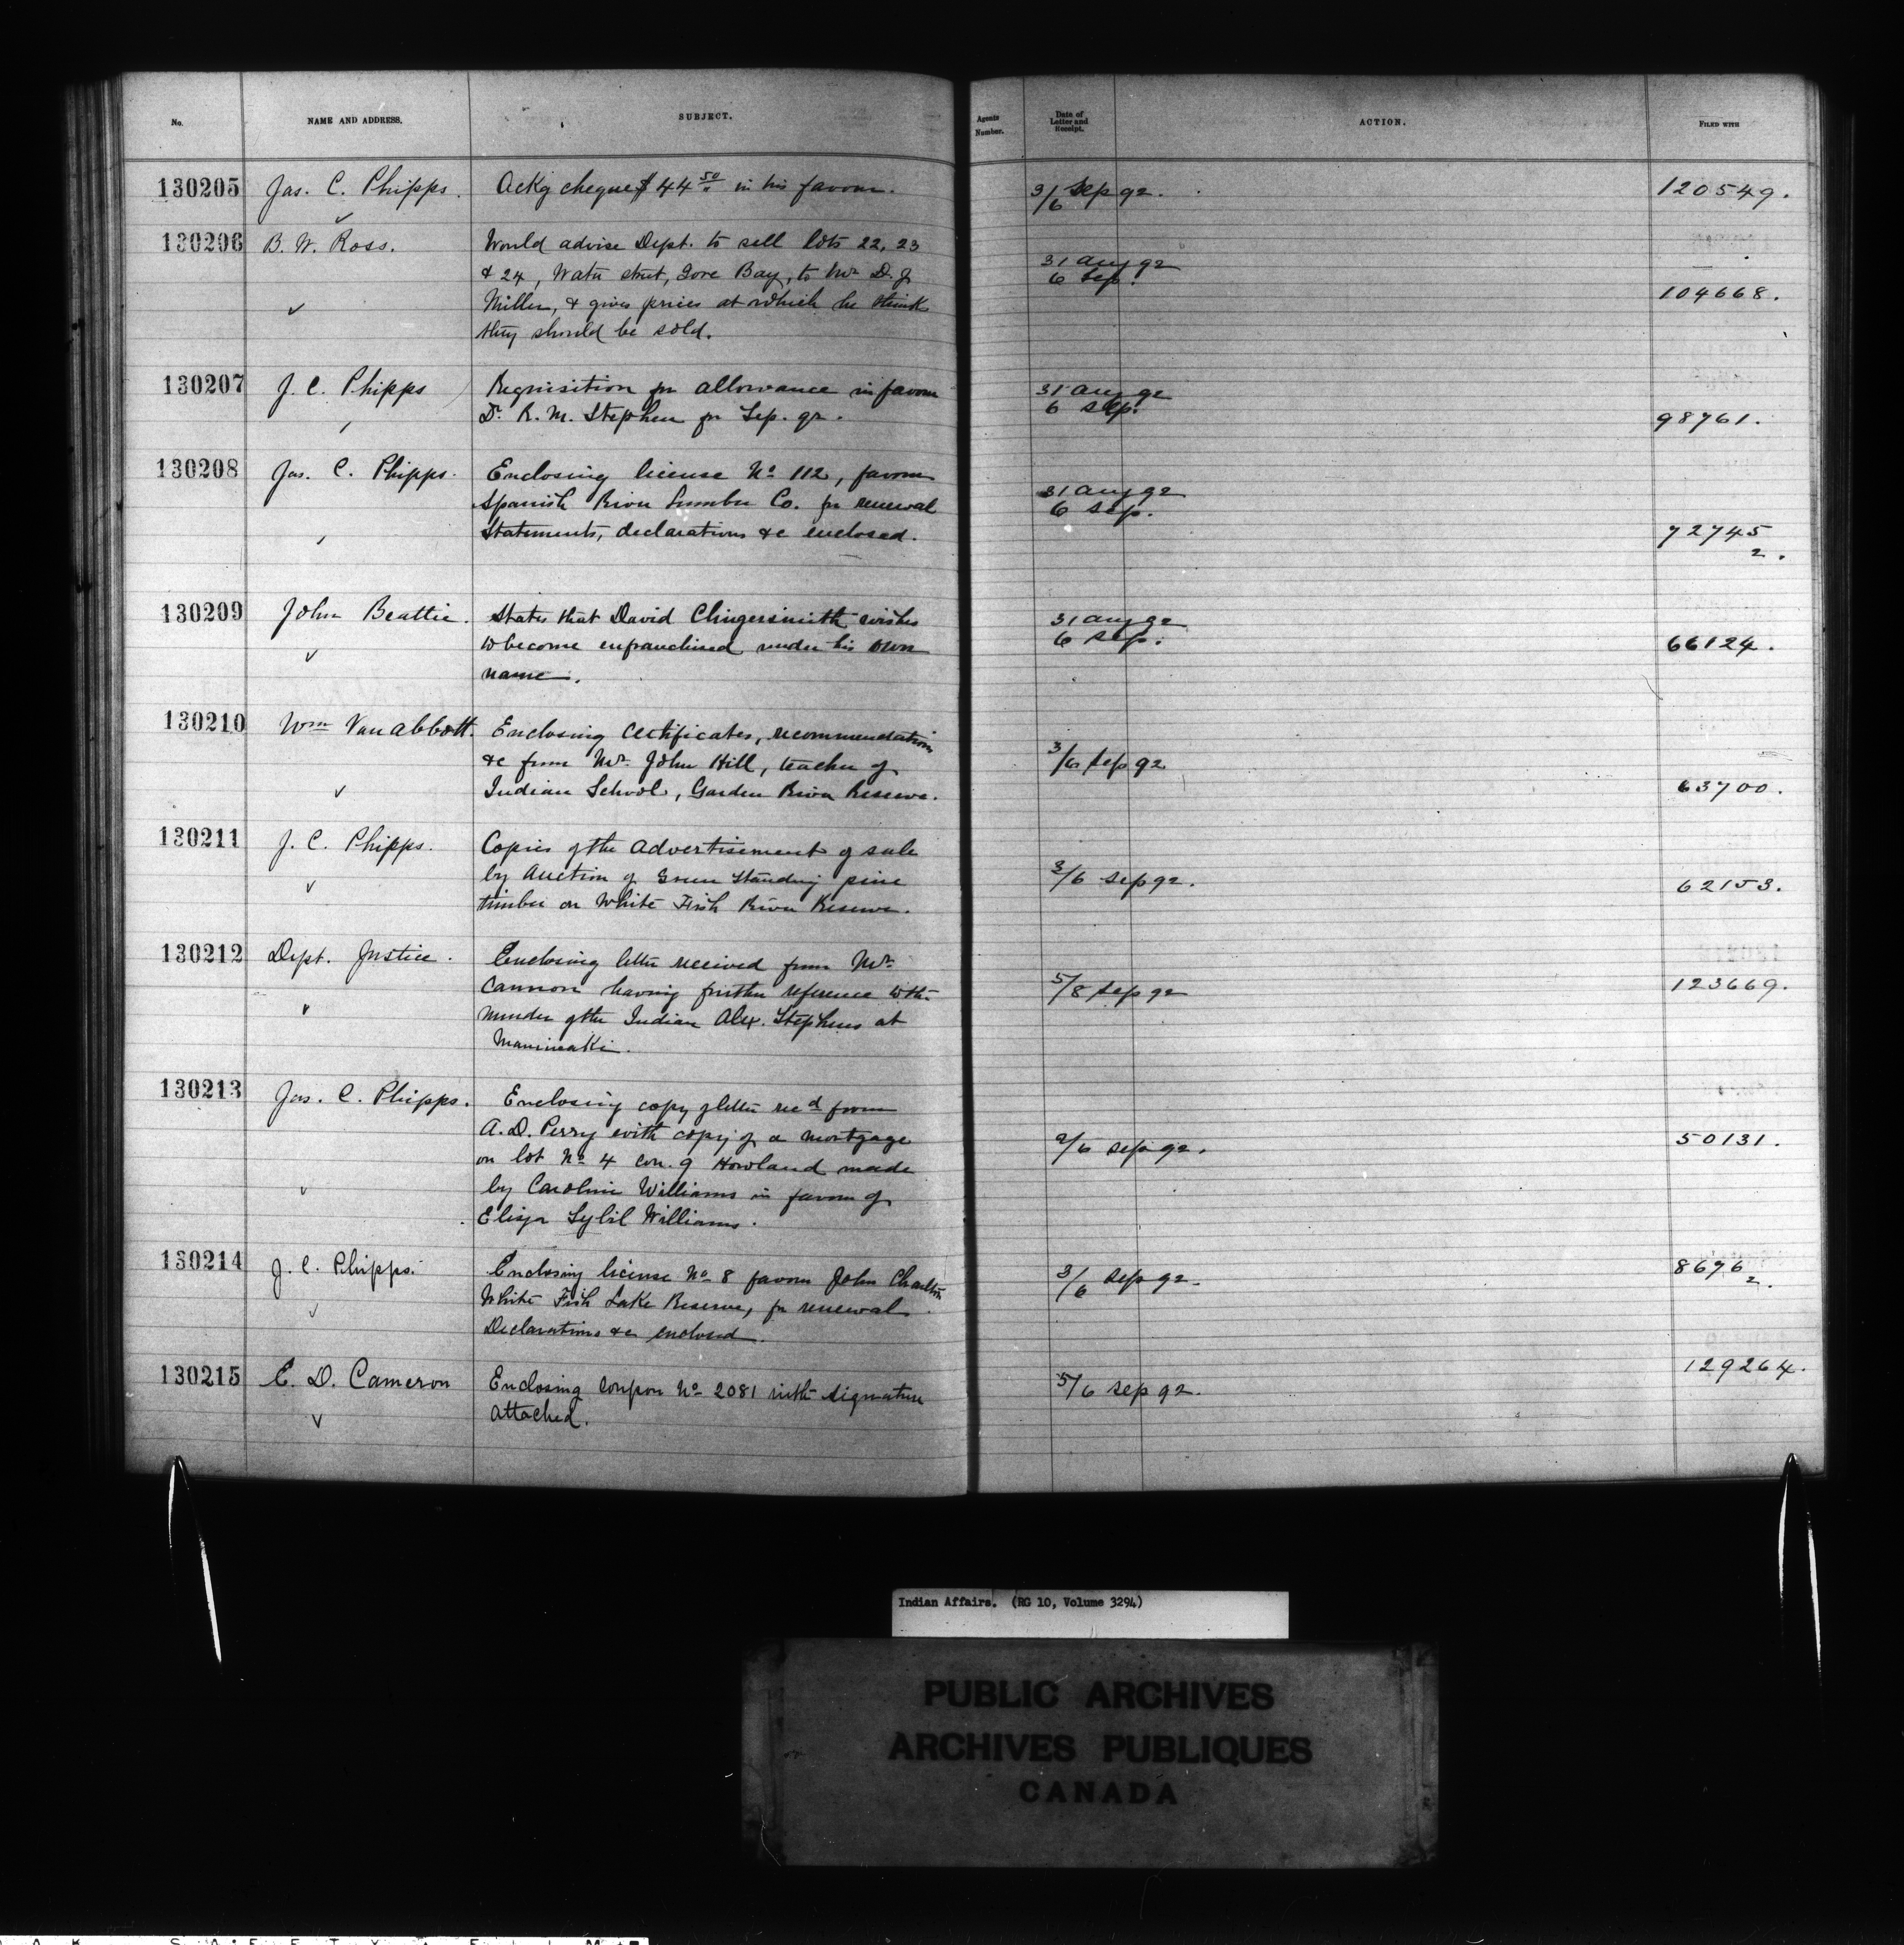 No. NAME AND ADDRESS. SUBJECT. Agents Number. Date of Letter and Receipt. ACTION. FILED WITH
130205 Jas. C. Phipps. Ackg cheque $44 50/" in his favour. 3/6 Sep 92. 120549.
130206 B. W. Ross. Would advise Dept. to sell lots 22, 23
& 24, Water street, Gore Bay, to Mr. D. J. 31 Aug 92
Miller, & gives prices at which he thinks 6 Sep. 104668.
they should be sold.
130207 J. C. Phipps Requisition for allowance in favour 31 Aug 92
Dr. R. M. Stephen for Sep. qr. 6 Sep. 98761.
130208 Jas. C. Phipps. Enclosing license No 112, favour
Spanish River Lumber Co. for renewal 31 Aug 92
Statements, declarations &c enclosed. 6 Sep. 72745
2.
130209 John Beattie. States that David Clingersmith wishes 31 Aug 92
to become enfranchised under his own 6 Sep. 66124.
name.
130210 Wm Van Abbott. Enclosing Certificates, recommendations
&c from Mr. John Hill, teacher of 3/6 Sep 92
Indian School, Garden River Reserve. 63700.
130211 J. C. Phipps. Copies of the Advertisement of sale
by Auction of Green Standing pine 3/6 Sep 92. 62153.
timber on White Fish River Reserve.
130212 Dept. Justice. Enclosing letter received from Mr.
Cannon having further reference to the 5/8 Sep 92 123669.
murder of the Indian Alex. Stephens at
Maniwaki.
130213 Jas. C. Phipps. Enclosing copy of letter recd from
A. D. Perry with copy of a mortgage 2/6 Sep 92. 50131.
on lot No 4 con. 9 Howland made
by Caroline Williams in favour of
Eliza Sybil Williams.
130214 J. C. Phipps. Enclosing license No 8 favour John Charlton 3/6 Sep 92. 8696
2.
White Fish Lake Reserve, for renewal.
Declarations &c enclosed.
130215 E. D. Cameron Enclosing Coupon No 2081 with signature 5/6 Sep 92. 129264.
attached.
Indian Affairs. (RG 10, Volume 3294)
PUBLIC ARCHIVES
ARCHIVES PUBLIQUES
CANADA